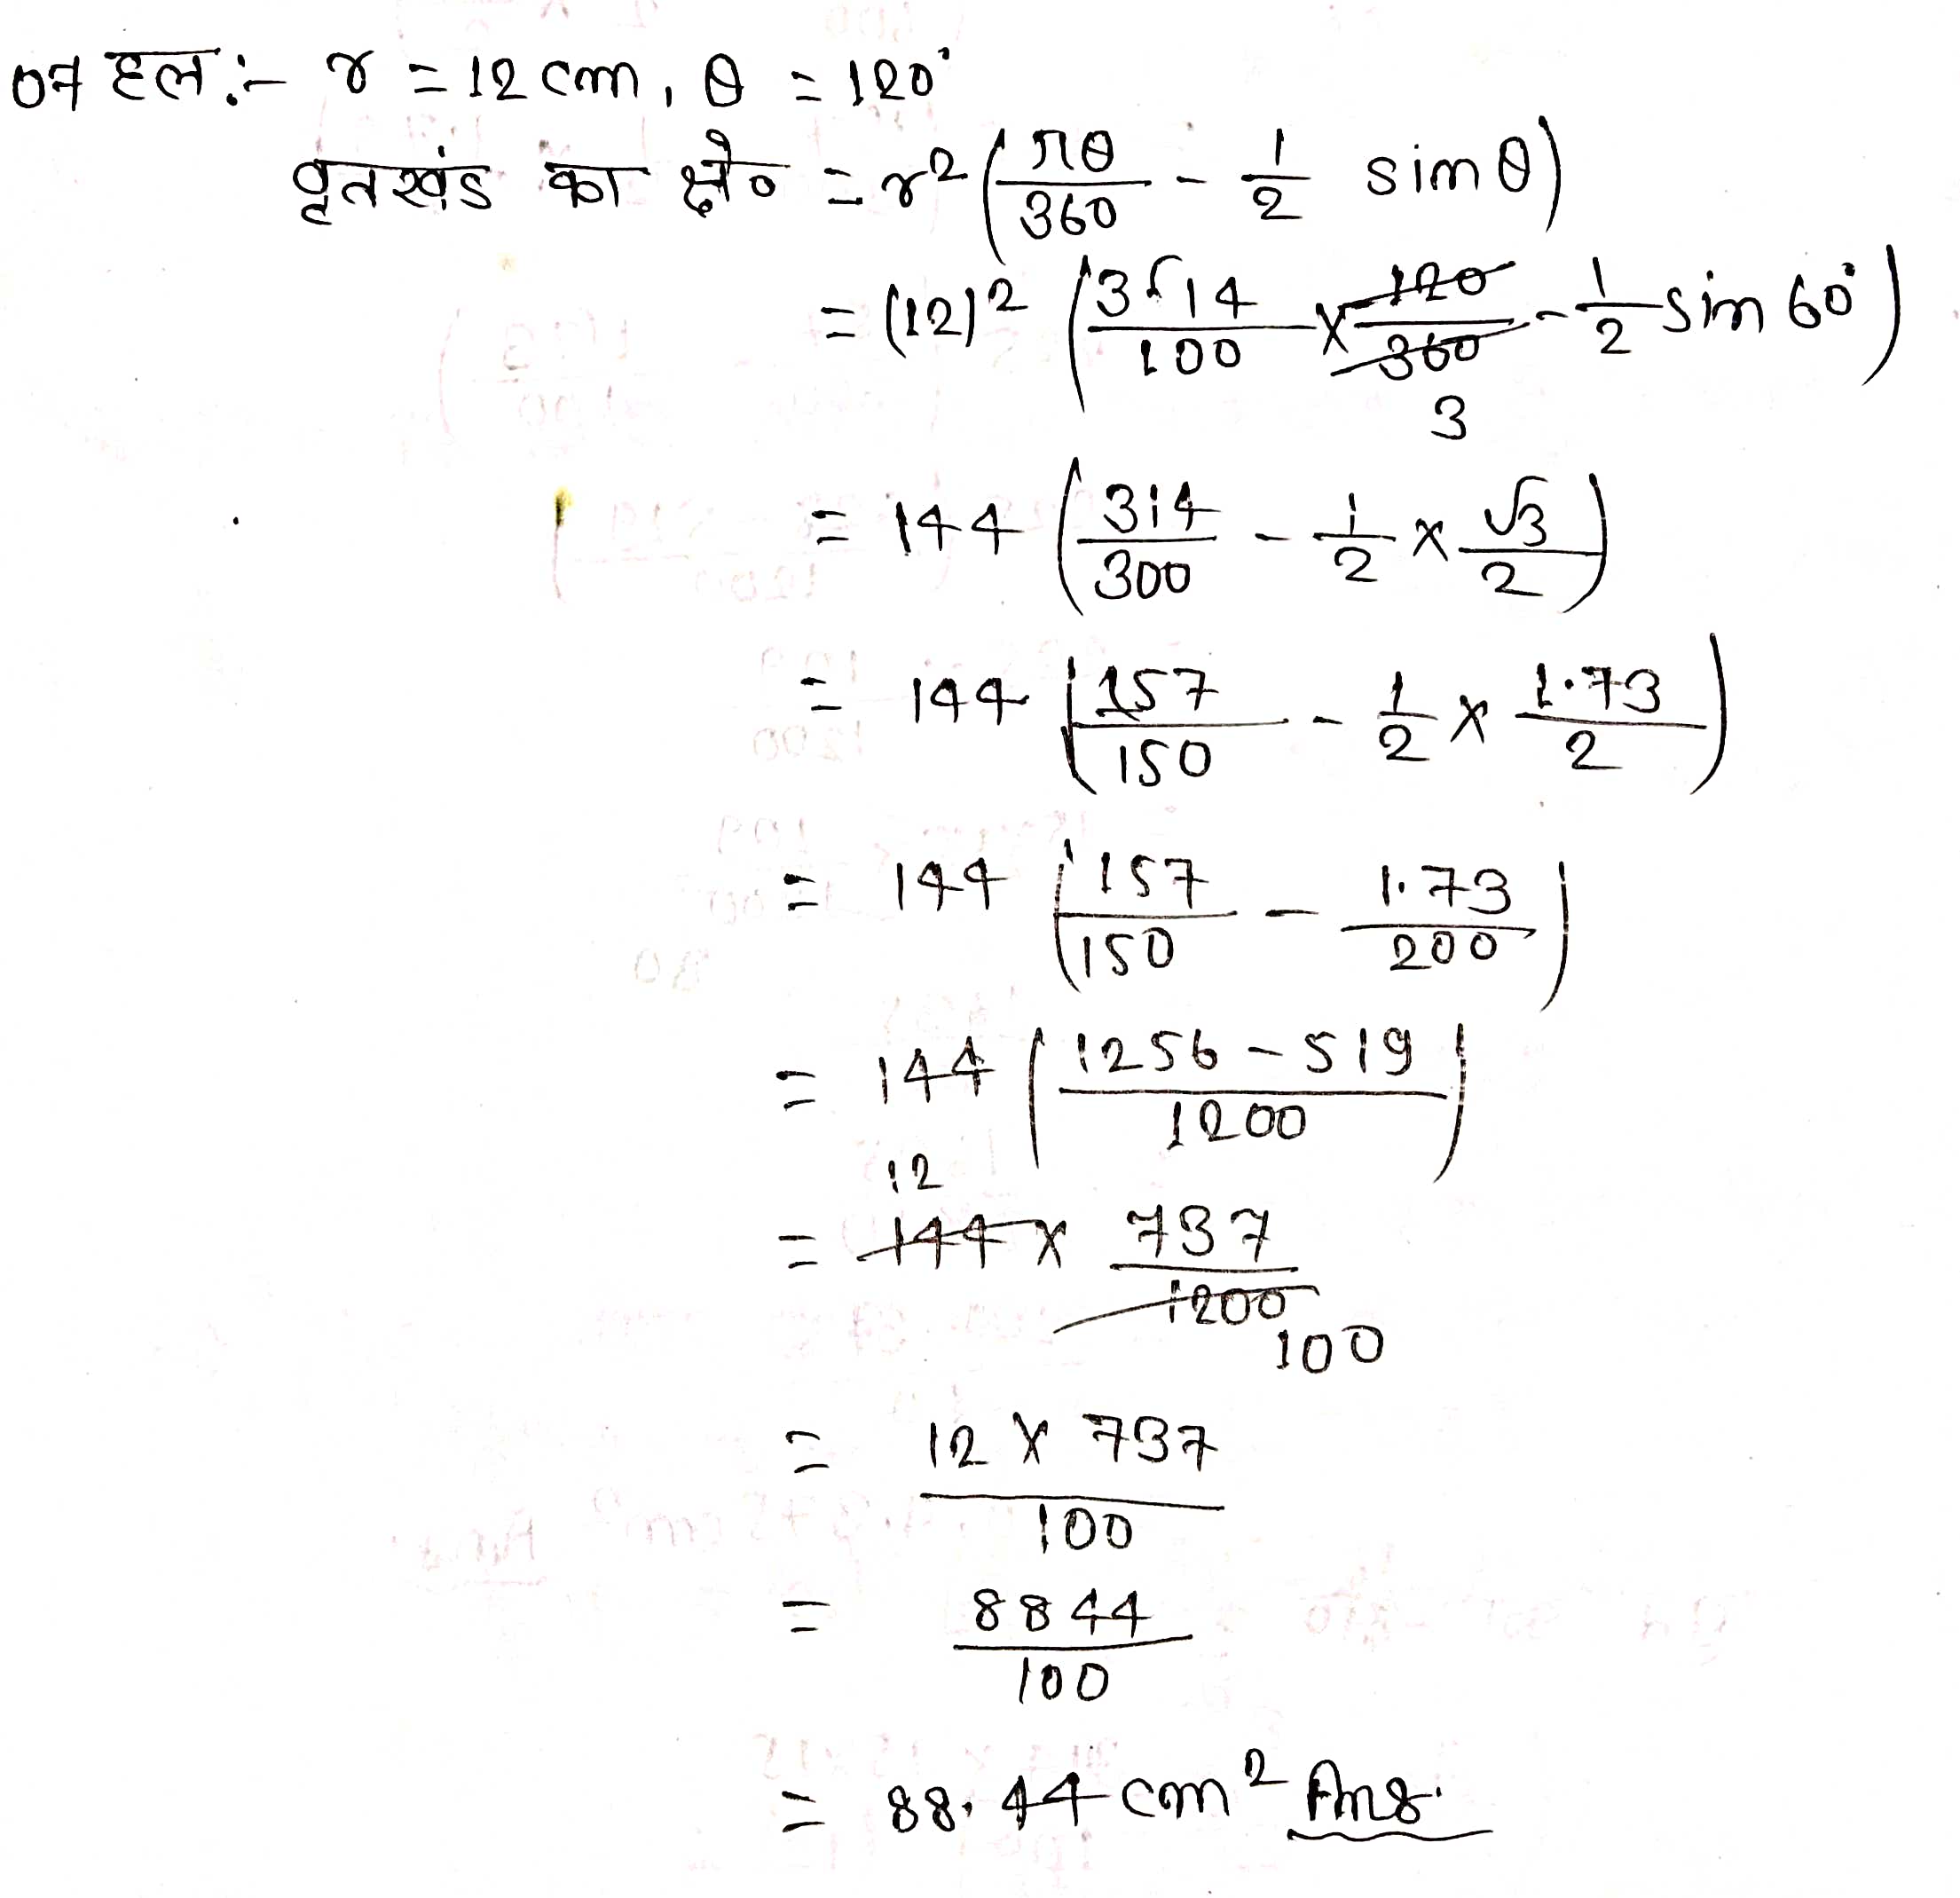 07 हल:- r = 12 cm, θ = 120°
वृतखंड का क्षे० = r² (πθ/360 - 1/2 sin θ)
= (12)² (314/100 × 120/360 - 1/2 sin 60°)
3
= 144 (314/300 - 1/2 × √3/2)
= 144 (157/150 - 1/2 × 1.73/2)
= 144 (157/150 - 1.73/200)
= 144 (1256 - 519/1200)
12
= 144 × 737/1200
100
= 12 × 737/100
= 8844/100
= 88.44 cm² Ans.